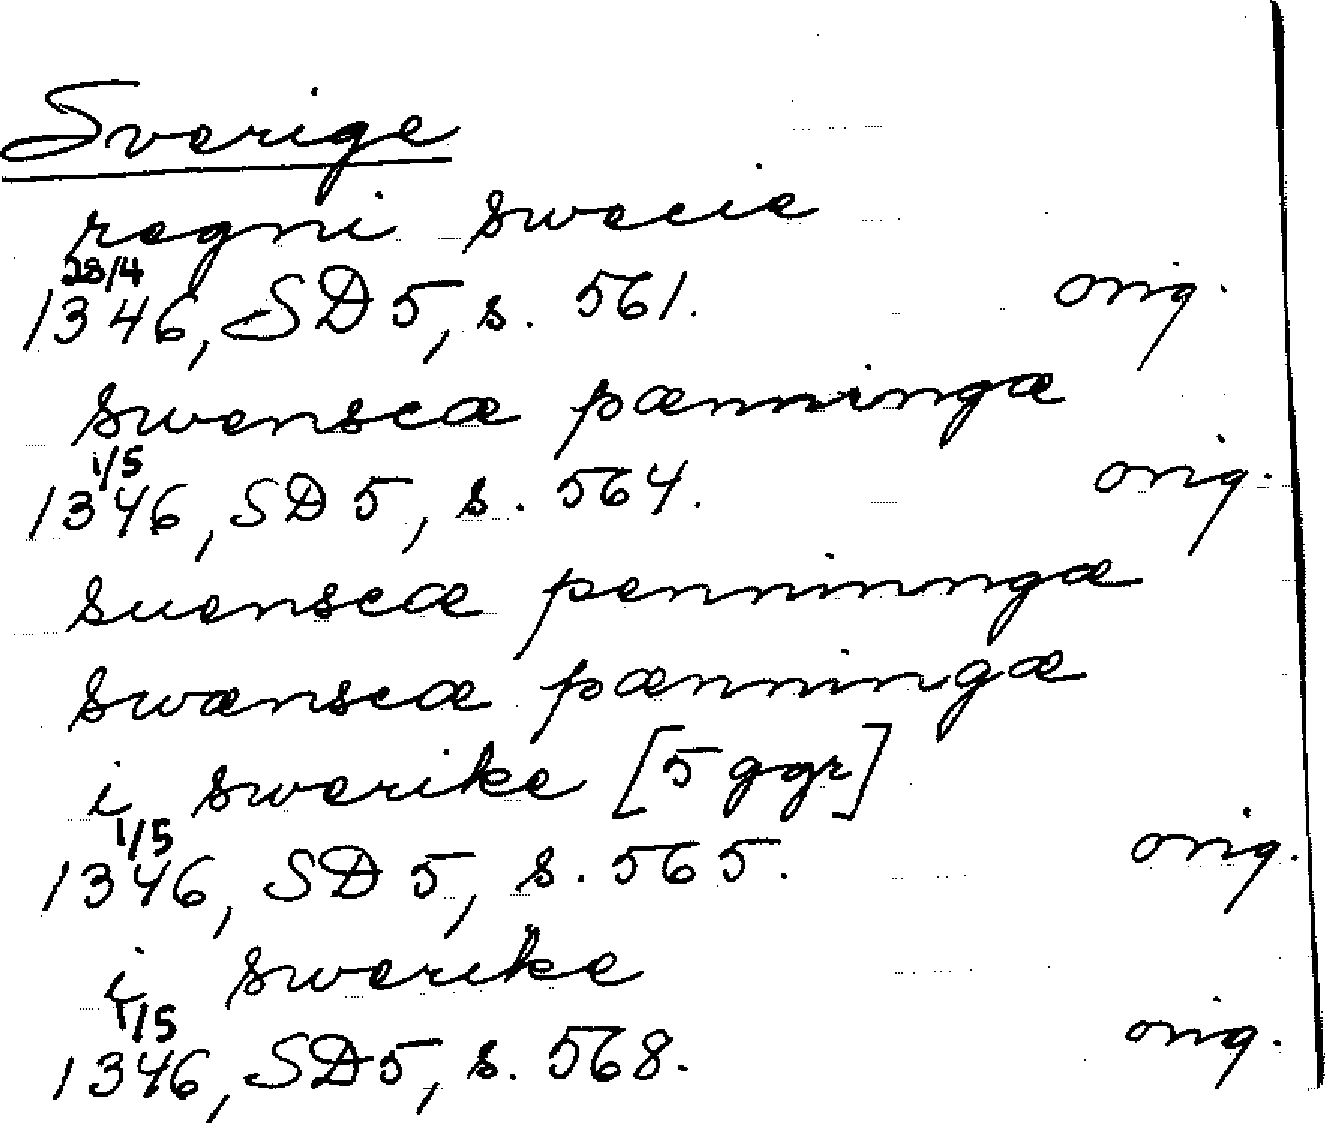 Sverige
regni swecie
28/4
1346, SD 5, s. 561. orig.
swenscæ pænningæ
1/5
1346, SD 5, s. 564. orig.
suenscæ penningæ
swænscæ pænningæ
i swerike [5 ggr]
1/5
1346, SD 5, s. 565. orig.
i swerike
1/5
1346, SD 5, s. 568. orig.